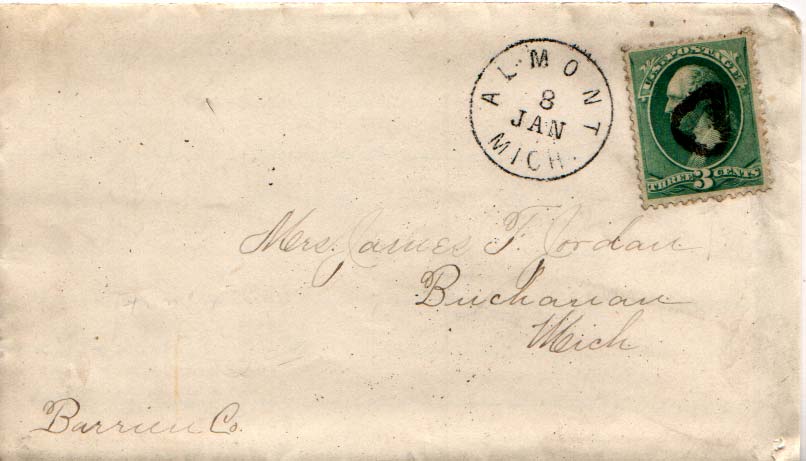 ALMONT
8
JAN
MICH.
U.S. POSTAGE
THREE 3 CENTS
Mrs. James F. Jordan
Buchanan
Mich
Barrien Co.